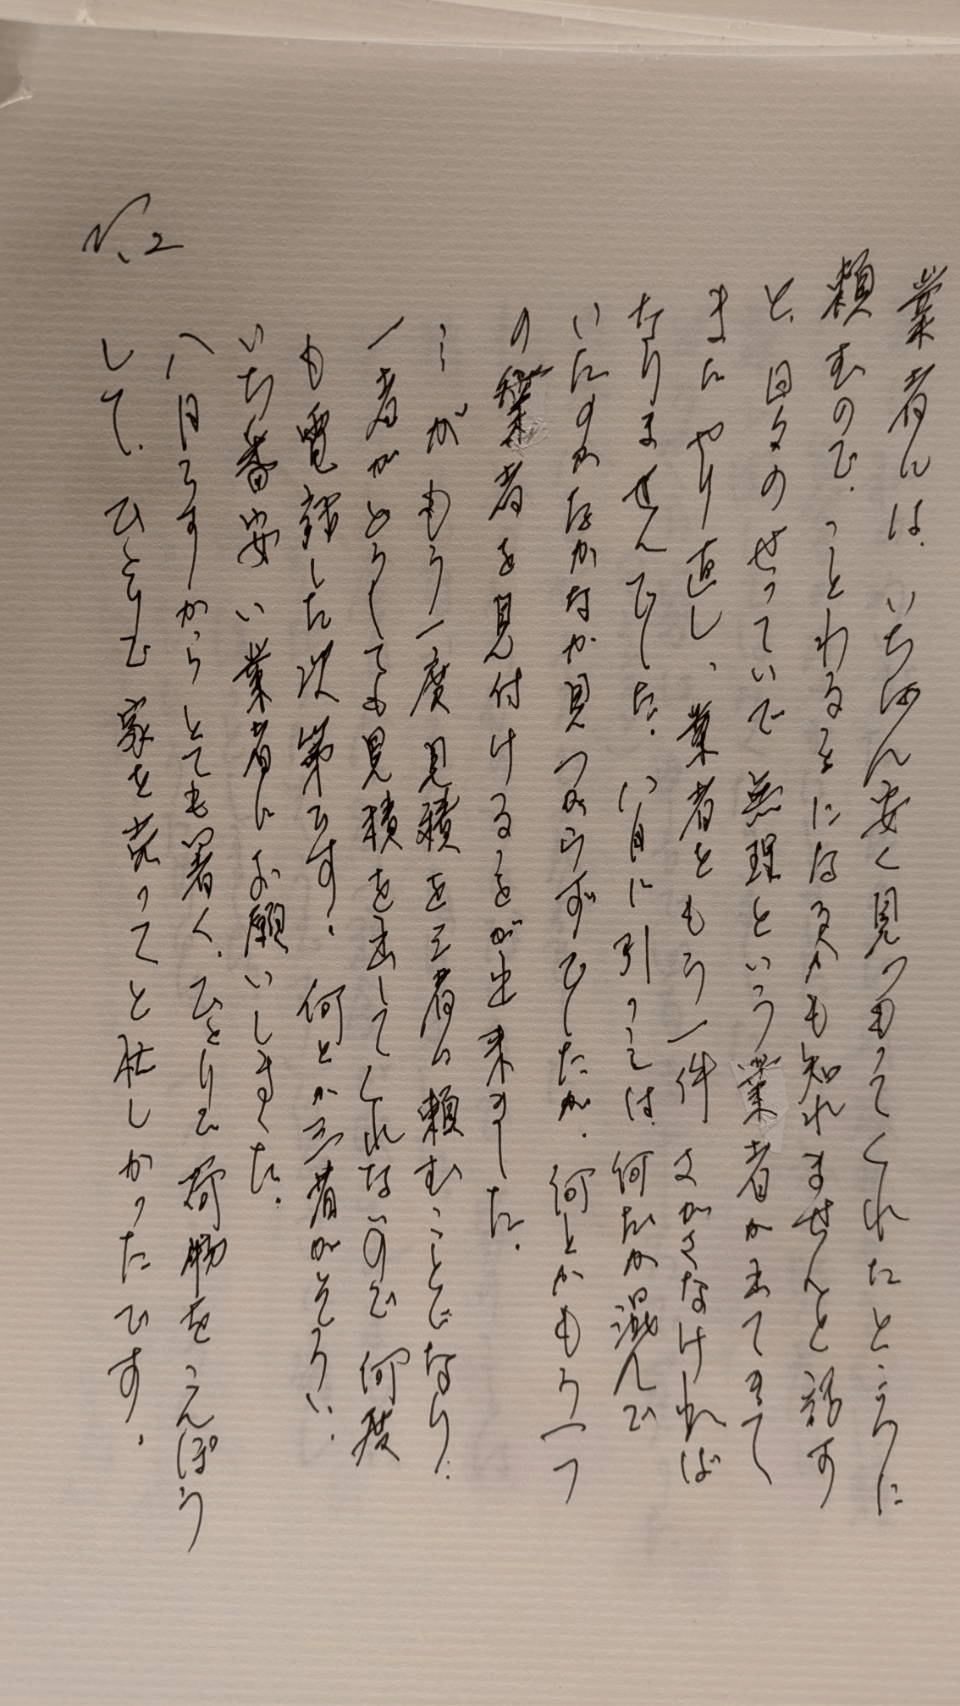 業者には、いちばん安く見つもってくれたところに
頼むので、ことわることになるかも知れませんと話す
と、日々のせっていで無理という業者が出てきて
またやり直し、業者をもう一件さがさなければ
なりませんでした。八月に引っこしは、何だか混んで
いたのかなかなか見つからずでしたが、何とかもう一つ
の業者を見付けることが出来ました。
が もう一度 見積を三者に頼むことになり、
一者がどうしても見積を出してくれないので 何度
も電話した次第です。何とか三者がそろい、
いち番安い業者にお願いしました。
八月ですからとても暑く、ひとりで荷物をこんぽう
して、ひとりで家を売ってと忙しかったです。
No.2